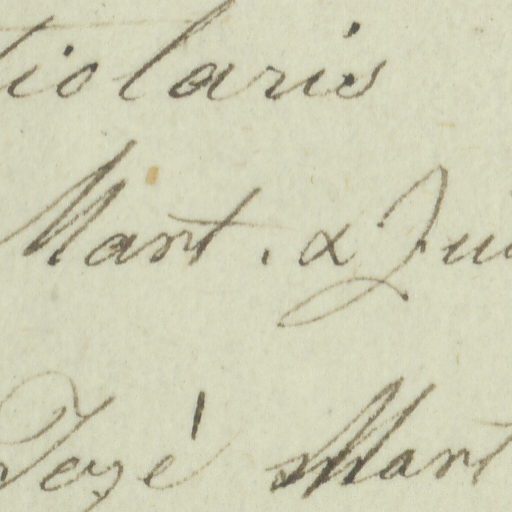 tiolaris
Mart. & Zuc
José Mart